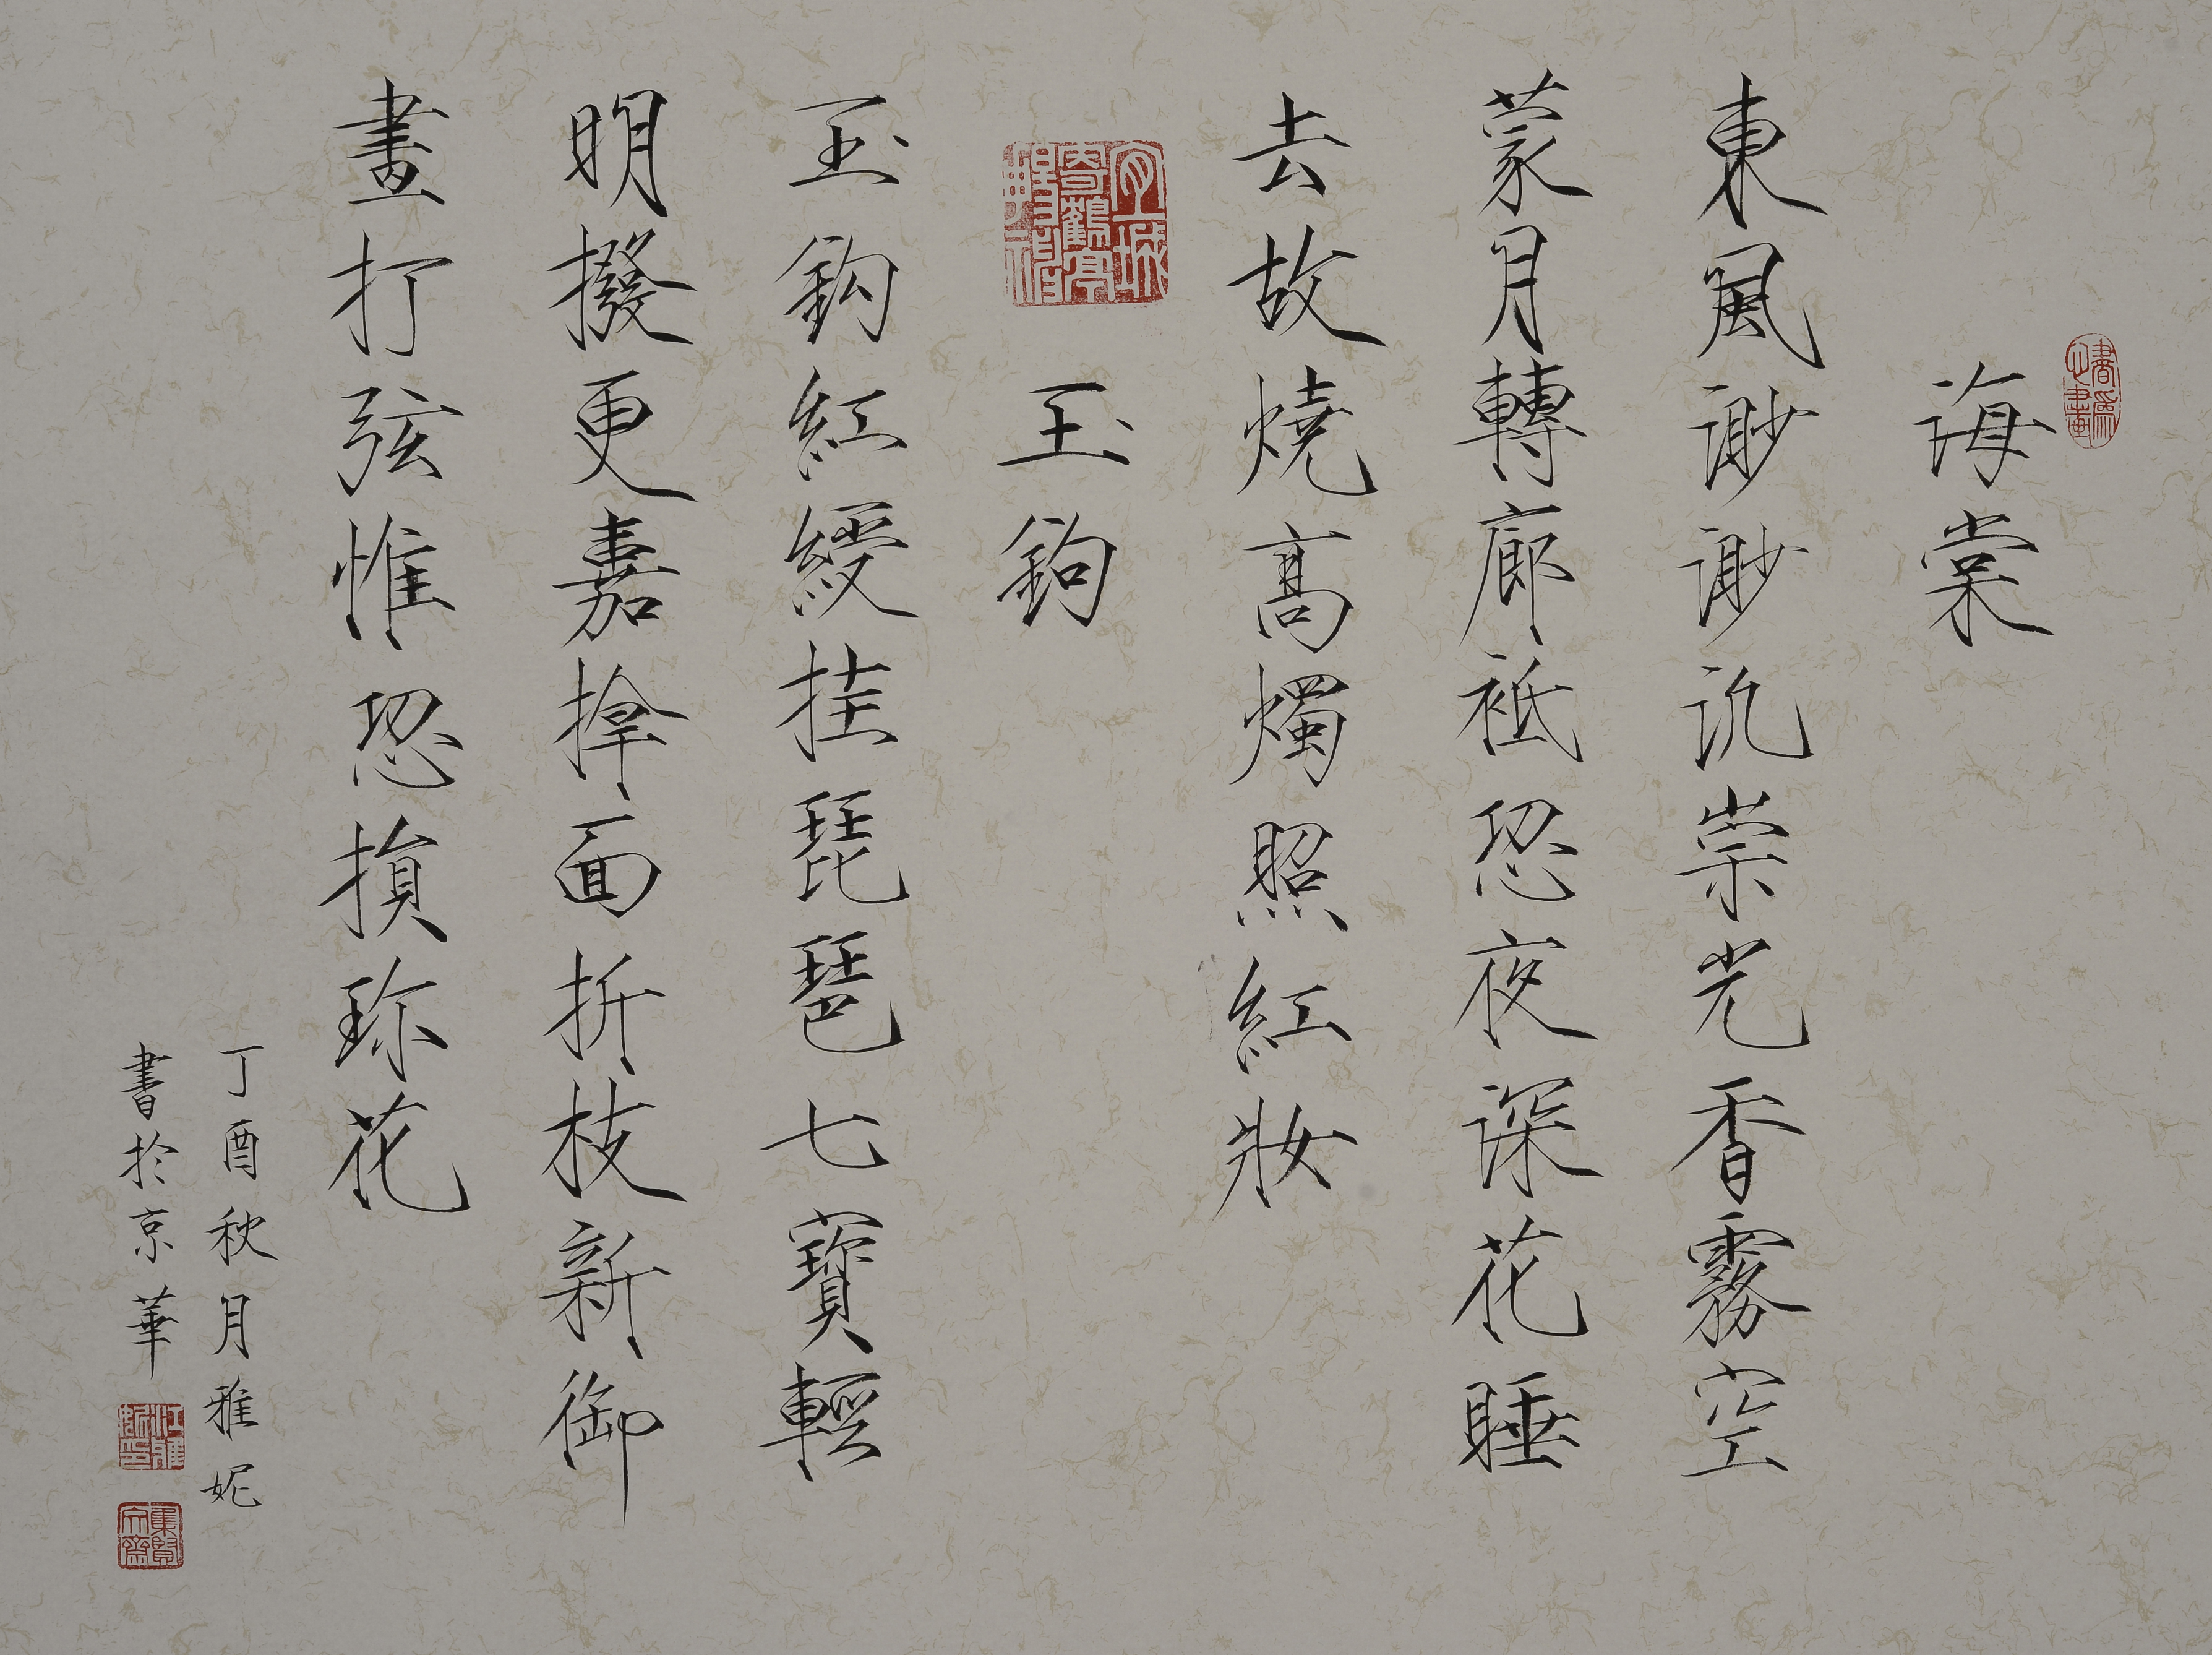 書為心畫
海棠
東風渺渺汎崇光香霧空
蒙月轉廊祗恐夜深花睡
去故燒高燭照紅妝
玉鉤
玉鈎紅綬挂琵琶七寶輕
明撥更嘉捍面折枝新御
畫打弦惟恐損珍花
丁酉秋月雅妮
書於京華
江雅妮印